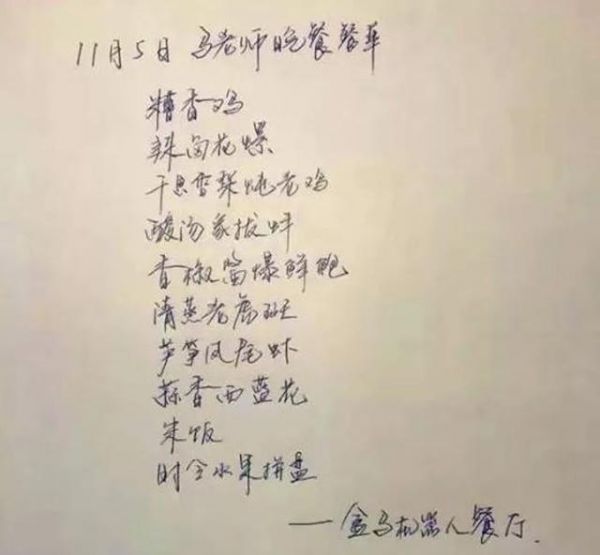 11月5日 马老师晚餐餐单
糟香鸡
辣淘花螺
干思雪梨炖老鸡
酸汤象拔蚌
香椒酱爆鲜鲍
清蒸老虎斑
芦笋凤尾虾
蒜香西蓝花
米饭
时令水果拼盘
——盒马机器人餐厅.